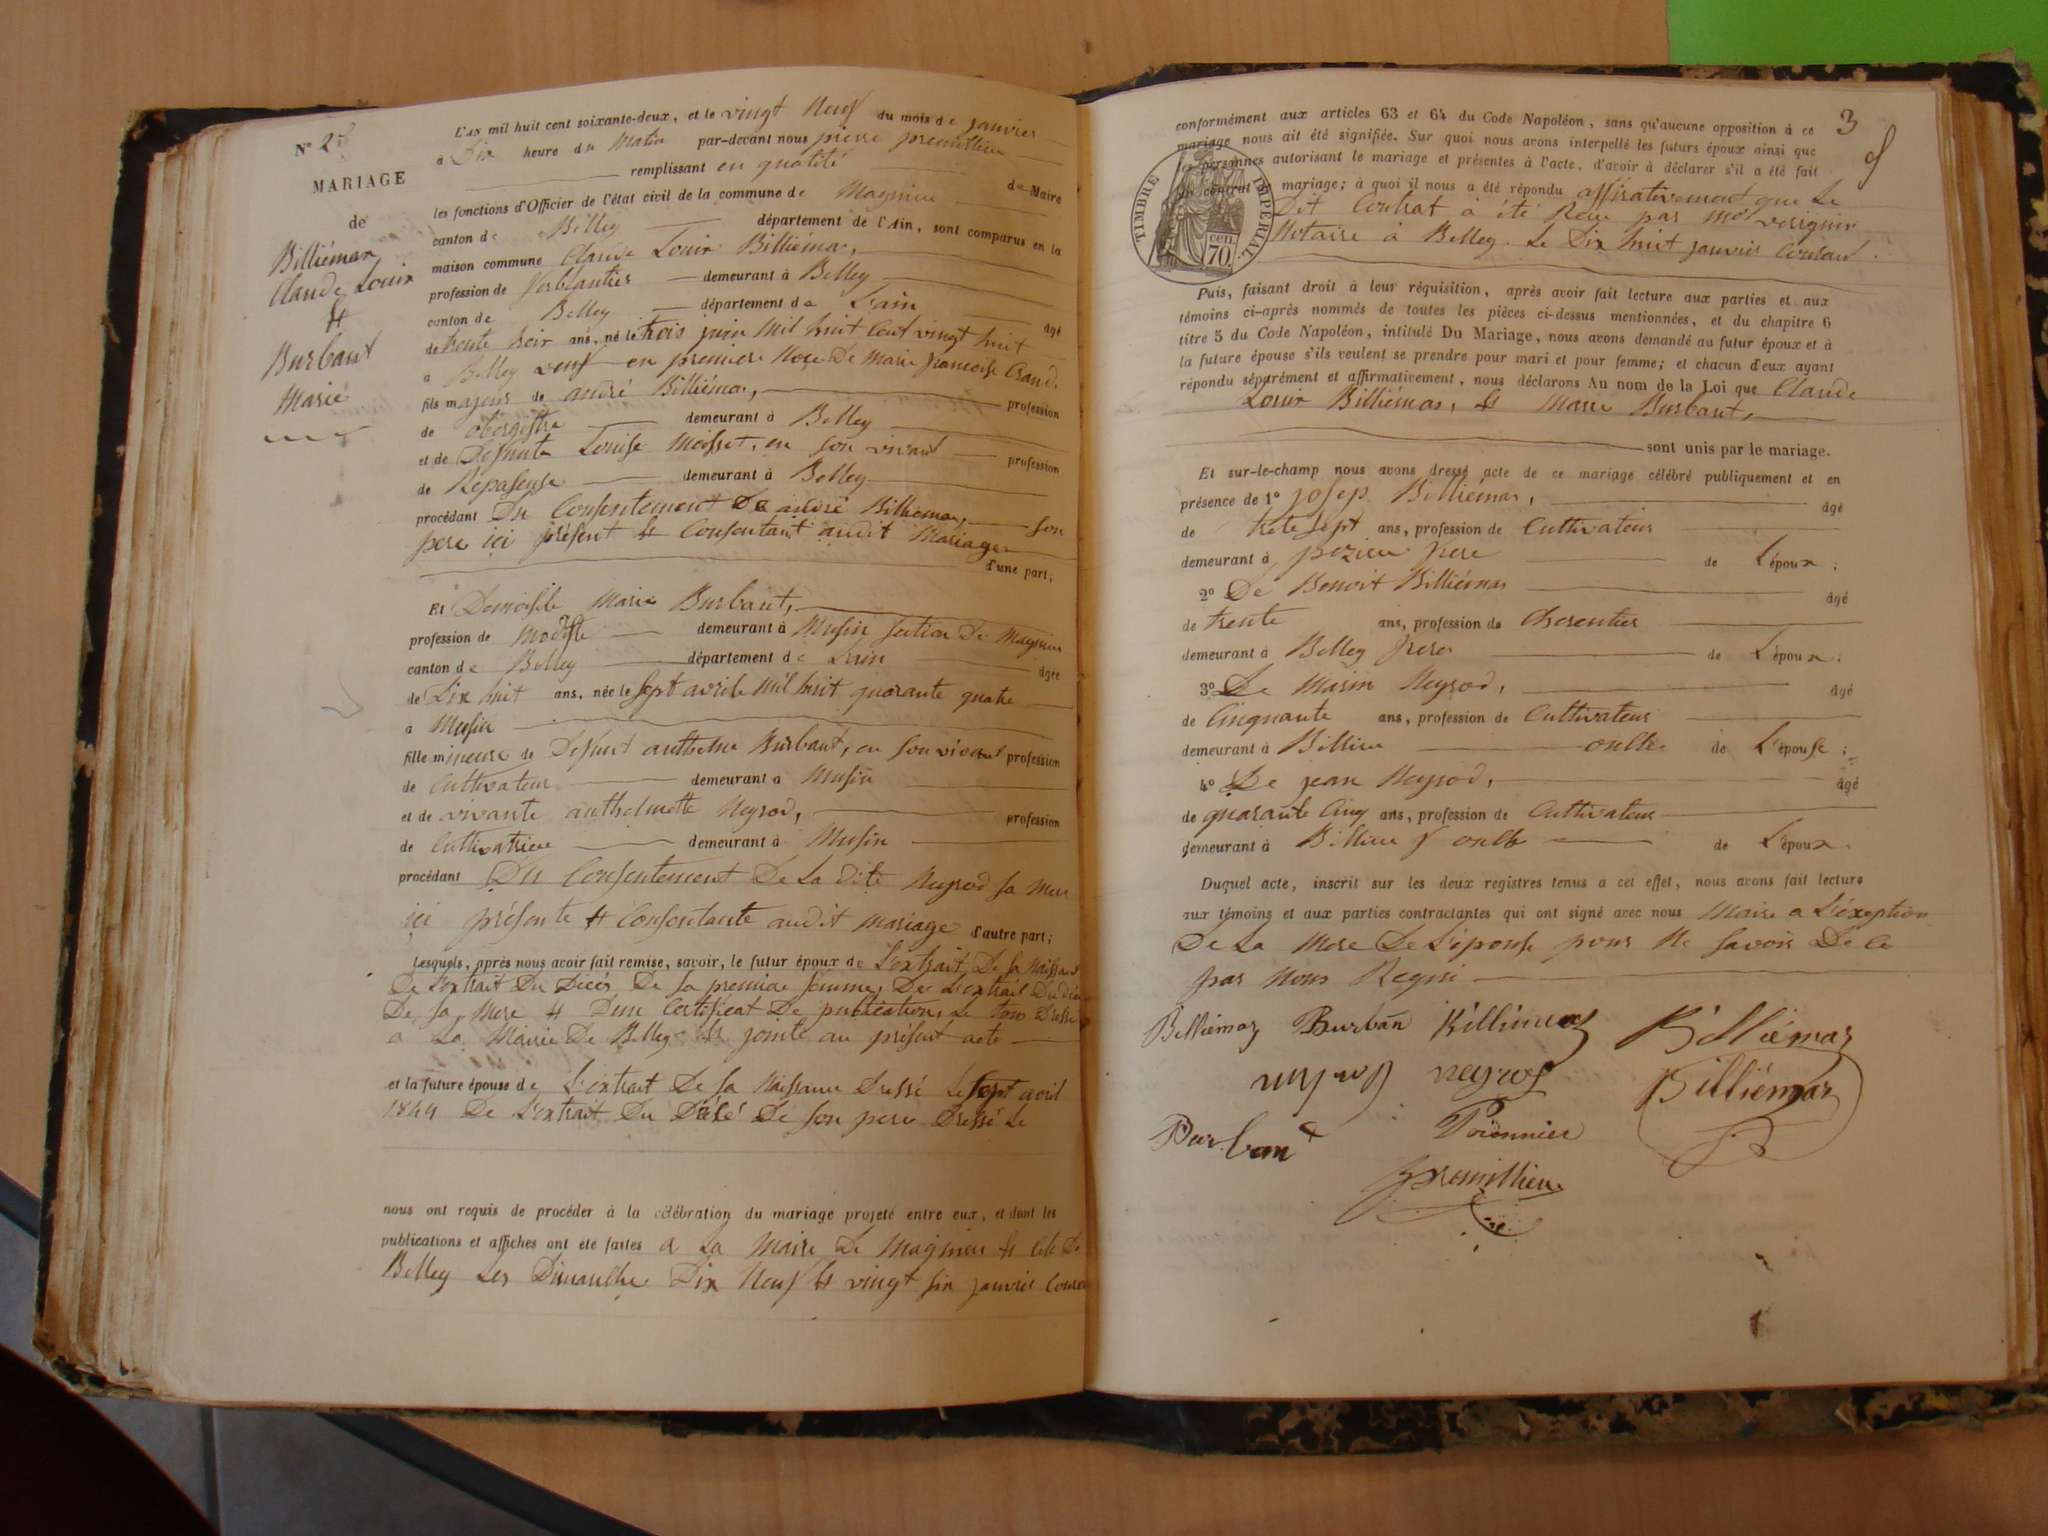 N° 2
MARIAGE
de
Billiémaz
Claude Louis
et
Burbant
Marie
L'an mil huit cent soixante-deux, et le vingt Neuf du mois de janvier
à Dix heure du Matin par-devant nous pierre premillieu
remplissant en qualité de Maire
les fonctions d'Officier de l'état civil de la commune de Magnieu
canton de Belley département de l'Ain, sont comparus en la
maison commune Claude Louis Billiémaz,
profession de ferblantier demeurant à Belley
canton de Belley département de L'ain âgé
de trente trois ans, né le trois juin Mil huit Cent vingt huit
a Belley veuf en premiere Noce De Marie françoise
fils majeur de andré Billiémaz, profession
de obergiste demeurant à Belley
et de Defunte Louise Moisset, en son vivant profession
de Repaseuse demeurant à Belley
procédant Du Consentement De andré Billiemaz, son
pere ici présent et Consentant audit Mariage
d'une part;
Et Demoiselle Marie Burbant,
profession de Modiste demeurant à Musin section De Magnieu
canton de Belley département de L'ain âgée
de Dix huit ans, née le Sept avrile Mil huit quarante quatre
a Musin
fille mineure de Defunt anthelme Burbant, en son vivant profession
de Cultivateur demeurant à Musin
et de vivante anthelmette Neyrod, profession
de Cultivatrice demeurant à Musin
procédant Du Consentement De La dite Neyrod sa Mere
ici présente et Consentante audit Mariage d'autre part;
Lesquels, après nous avoir fait remise, savoir, le futur époux de L'extrait De sa Naissance
De L'extrait Du Décés De sa premiere femme, De L'extrait Du
De sa Mere et D'un Certificat De publication, Le tous Dressé
a La Mairie De Belley et joints au présent acte
et la future épouse de L'extrait De sa Naissance Dressé Le Sept avril
1844 De L'extrait Du Décé De son pere Dressé Le
nous ont requis de procéder à la célébration du mariage projeté entre eux, et dont les
publications et affiches ont été faites a La Maire De Magnieu et Cele De
Belley Les Dimanche Dix Neuf et vingt six janvier Courant
3
conformément aux articles 63 et 64 du Code Napoléon, sans qu'aucune opposition à ce
mariage nous ait été signifiée. Sur quoi nous avons interpellé les futurs époux ainsi que
les personnes autorisant le mariage et présentes à l'acte, d'avoir à déclarer s'il a été fait
un contrat de mariage; à quoi il nous a été répondu affirativement que Le
Dit Contrat à été Reçu par Me
Notaire à Belley. Le Dix huit janvier Courant.
TIMBRE IMPÉRIAL
cen.
70.
Puis, faisant droit à leur réquisition, après avoir fait lecture aux parties et aux
témoins ci-après nommés de toutes les pièces ci-dessus mentionnées, et du chapitre 6
titre 5 du Code Napoléon, intitulé Du Mariage, nous avons demandé au futur époux et à
la future épouse s'ils veulent se prendre pour mari et pour femme; et chacun d'eux ayant
répondu séparément et affirmativement, nous déclarons Au nom de la Loi que Claude
Louis Billiémaz, et Marie Burbant,
sont unis par le mariage.
Et sur-le-champ nous avons dressé acte de ce mariage célébré publiquement et en
présence de 1° josep Billiémaz, âgé
de trete sept ans, profession de Cultivateur
demeurant à pezieu frere de L'époux;
2° De Benoit Billiémaz âgé
de trente ans, profession de Charentier
demeurant à Belley frere de L'époux;
3° De Marin Neyrod, âgé
de Cinquante ans, profession de Cultivateur
demeurant à Billieu oncle de L'épouse;
4° De jean Neyrod, âgé
de quarante Cinq ans, profession de Cultivateur
demeurant à Billieu oncle de L'époux.
Duquel acte, inscrit sur les deux registres tenus à cet effet, nous avons fait lecture
aux témoins et aux parties contractantes qui ont signé avec nous Maire a L'éxeption
De La Mere De L'épouse pour Ne savoir De ce
par Nous Requi
Billiémaz Burban Billiémaz Billiémaz
neyrod Billiémaz
Burbant Poironnier
premillieu